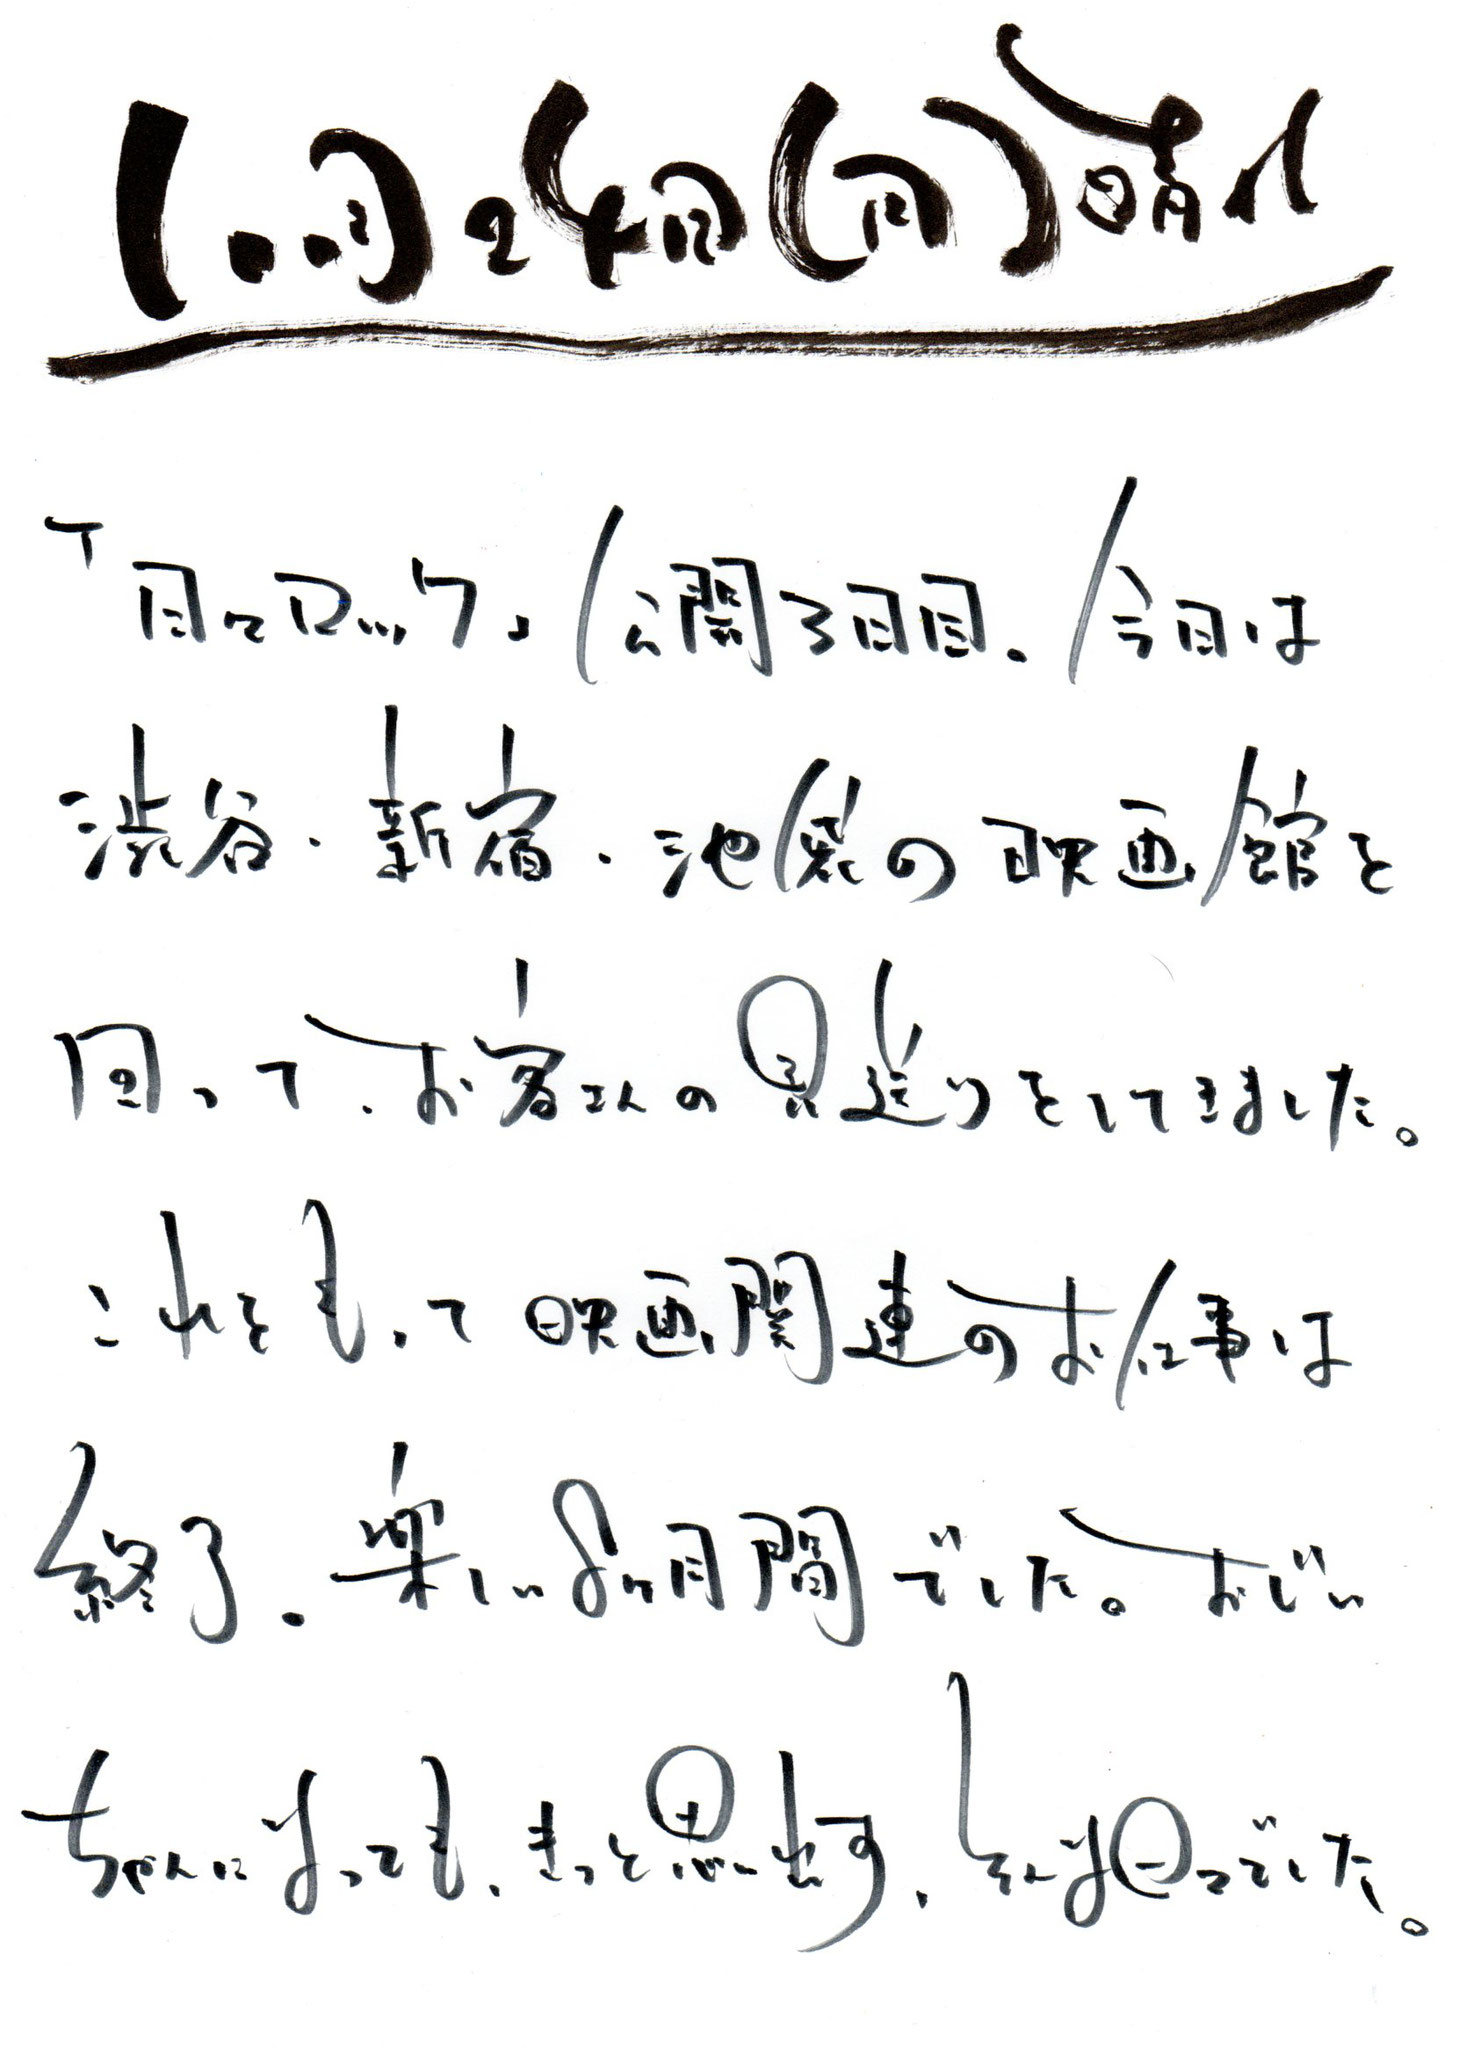 11月24日(月)晴れ
「日々ロック」公開3日目。今日は
渋谷・新宿・池袋の映画館を
回って、お客さんの見送りをしてきました。
これをもって映画関連のお仕事は
終了。楽しい8ヶ月間でした。おじい
ちゃんになっても、きっと思い出す、そんな日々でした。